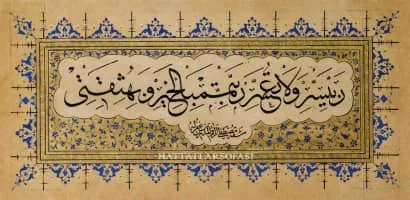 رب يسر ولا تعسر رب تمم بالخير وبه ثقتي
HATTATLARSOFASI